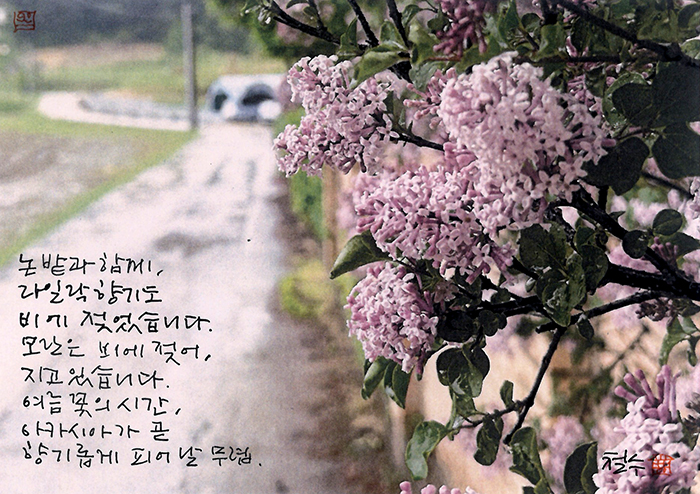 논밭과 함께,
라일락 향기도
비에 젖었습니다.
모란은 비에 젖어,
지고 있습니다.
여름 꽃의 시간,
아카시아가 곧
향기롭게 피어날 무렵.
철수